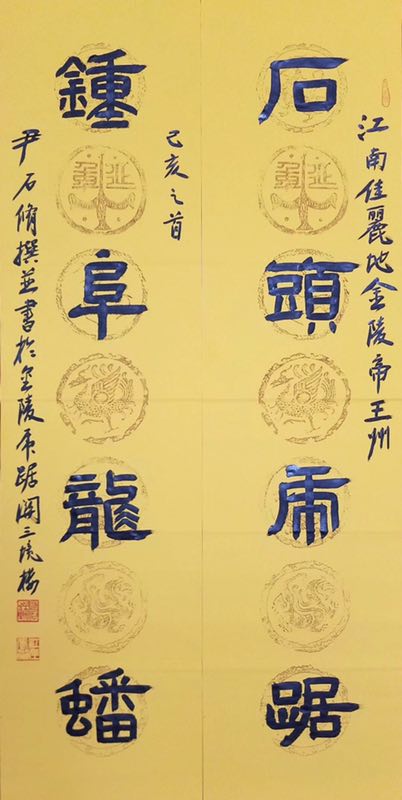 江南佳麗地金陵帝王州
石頭虎踞
己亥之首
鍾阜龍蟠
尹石脩撰並書於金陵虎踞關三